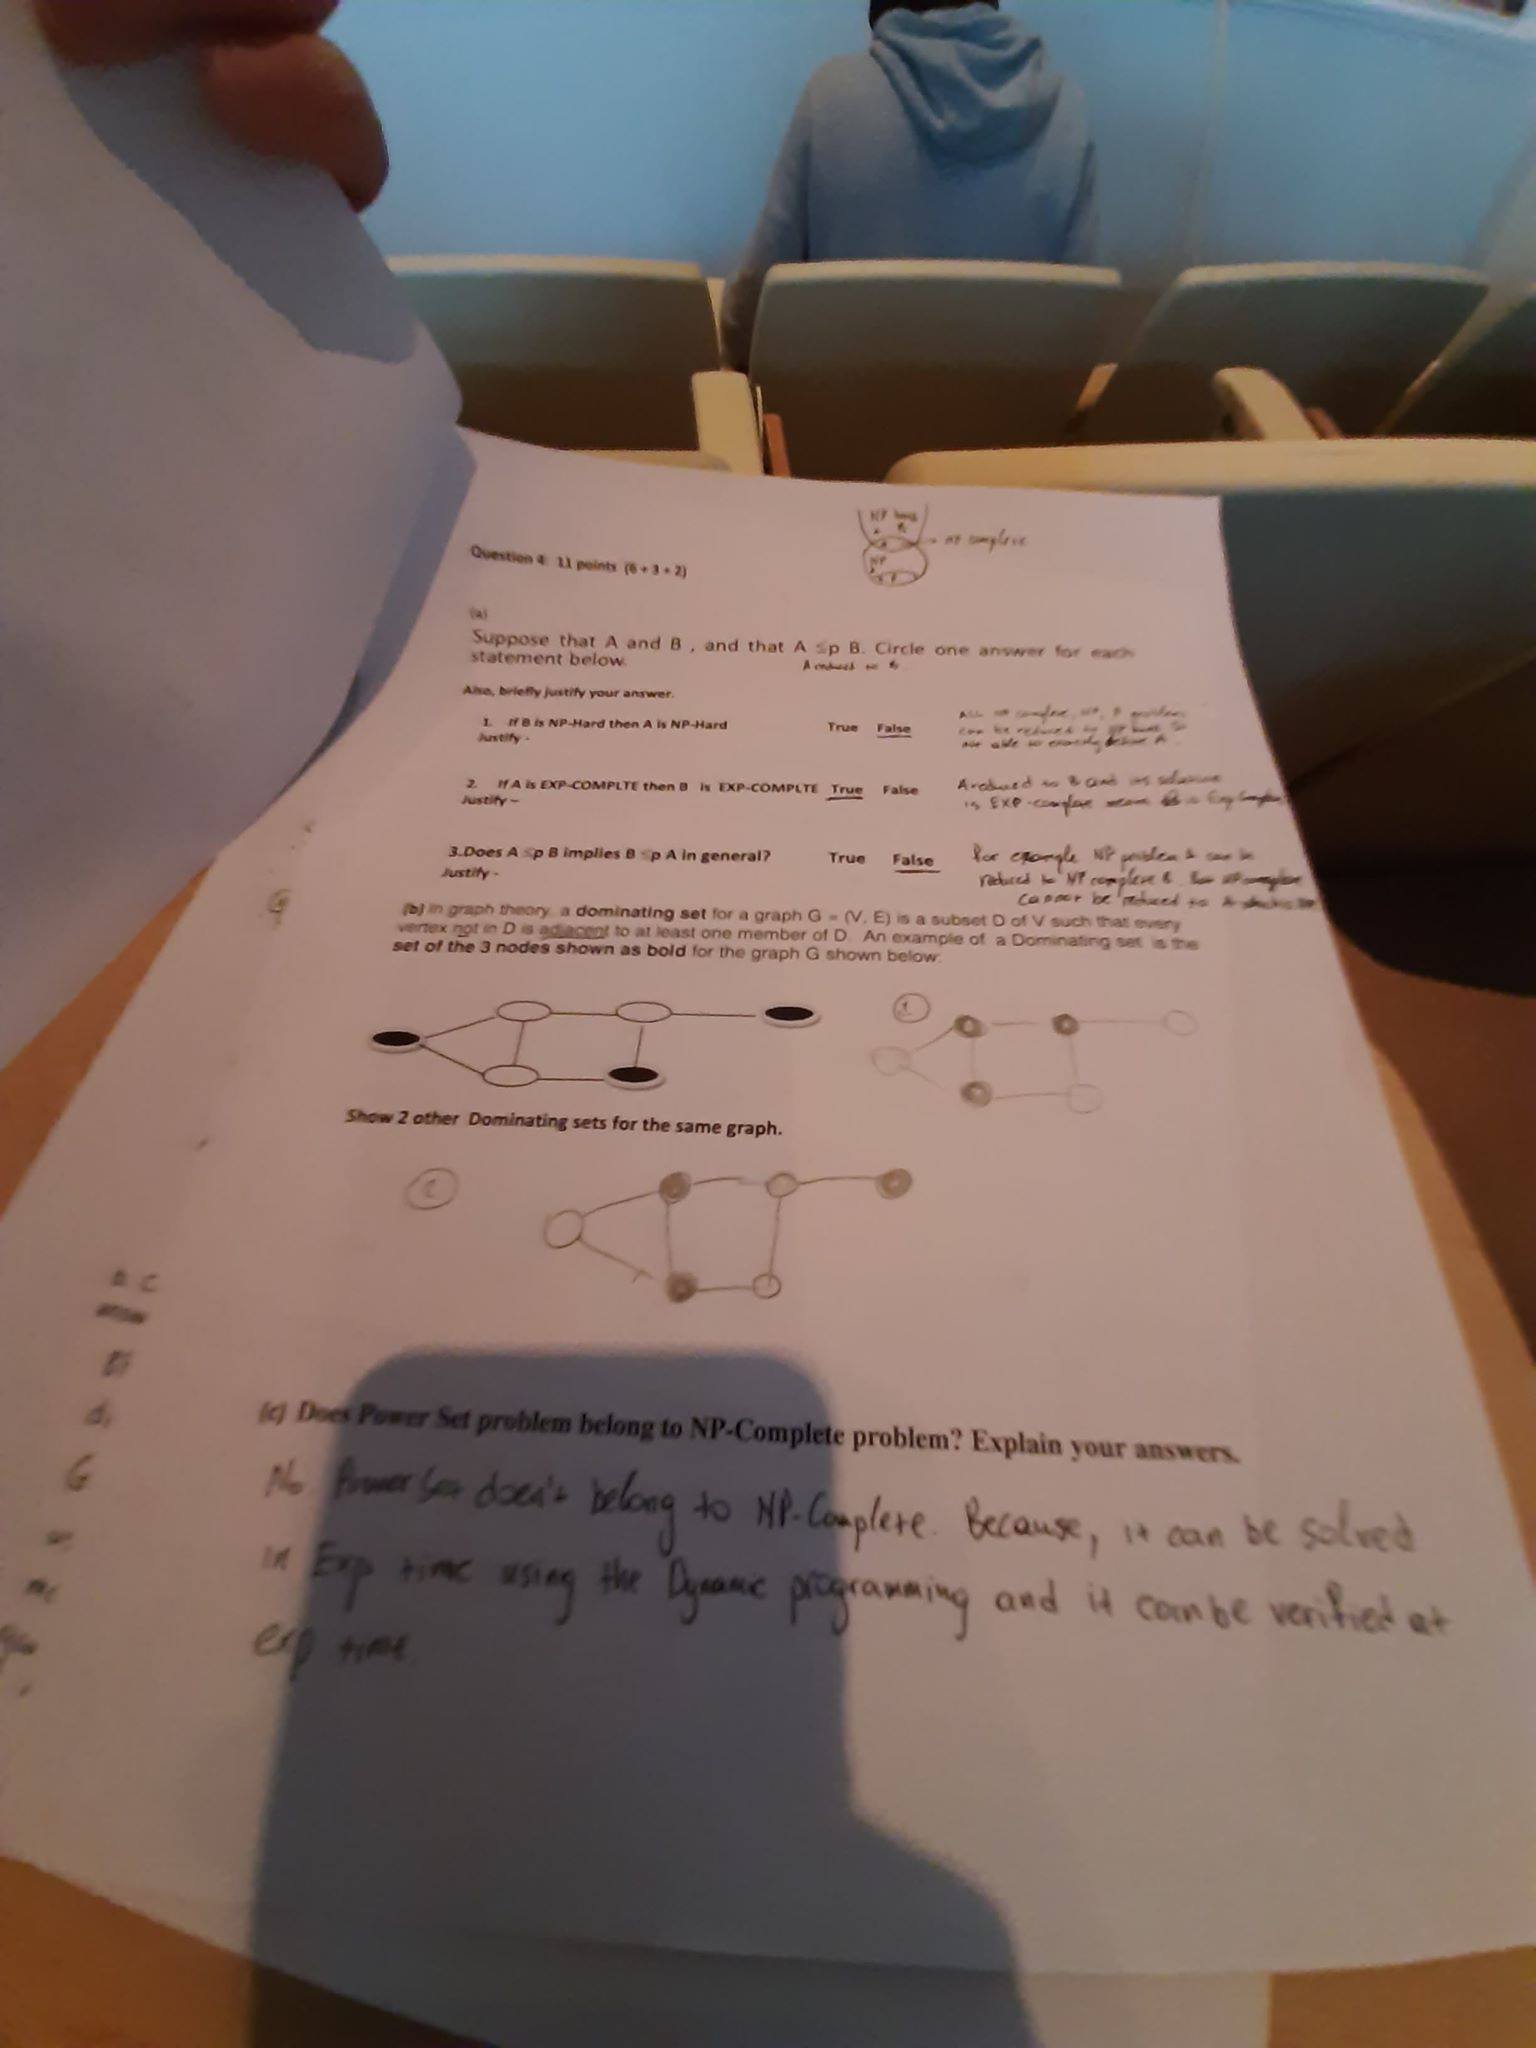 NP hard
NP complete
NP
P
Question 4: 11 points (6 + 3 + 2)
(a)
Suppose that A and B , and that A ≤p B. Circle one answer for each
statement below.
A reduced to B
Also, briefly justify your answer.
1. If B is NP-Hard then A is NP-Hard True False
Justify -
All NP complete, NP, P problems
can be reduced to NP hard So
not able to exactly define A.
2. If A is EXP-COMPLTE then B is EXP-COMPLTE True False
Justify –
A reduced to B and its solution
is EXP-complete means B is Exp Complete
3.Does A ≤p B implies B ≤p A in general? True False
Justify -
For example NP problem A can be
reduced to NP complete B. But NP complete
cannot be reduced to A
(b) In graph theory, a dominating set for a graph G = (V, E) is a subset D of V such that every
vertex not in D is adjacent to at least one member of D. An example of a Dominating set is the
set of the 3 nodes shown as bold for the graph G shown below:
1
Show 2 other Dominating sets for the same graph.
2
(c) Does Power Set problem belong to NP-Complete problem? Explain your answers.
No Power Set doesn't belong to NP-Complete. Because, it can be solved
in Exp time using the Dynamic programming and it can be verified at
exp time